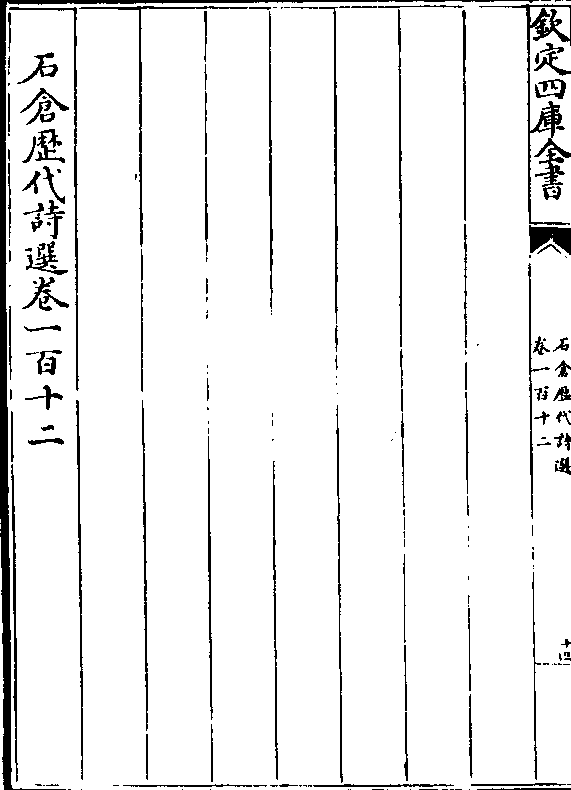 欽定四庫全書
石倉歷代詩選
卷一百十二
十四
石倉歷代詩選卷一百十二